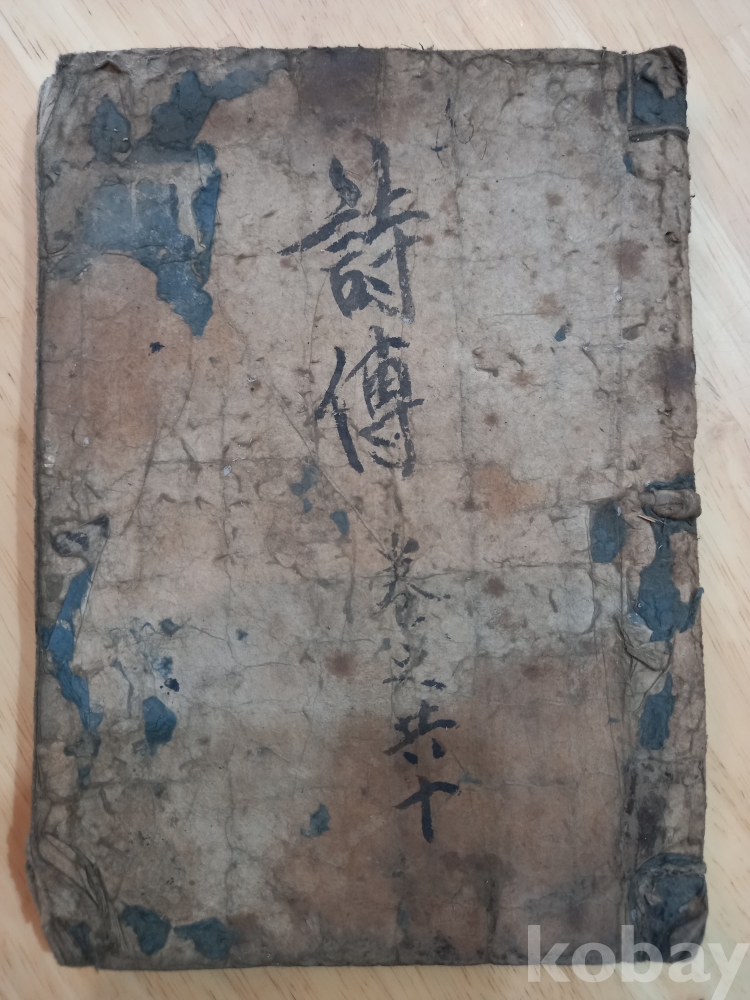 詩傳
卷之共十
kobay